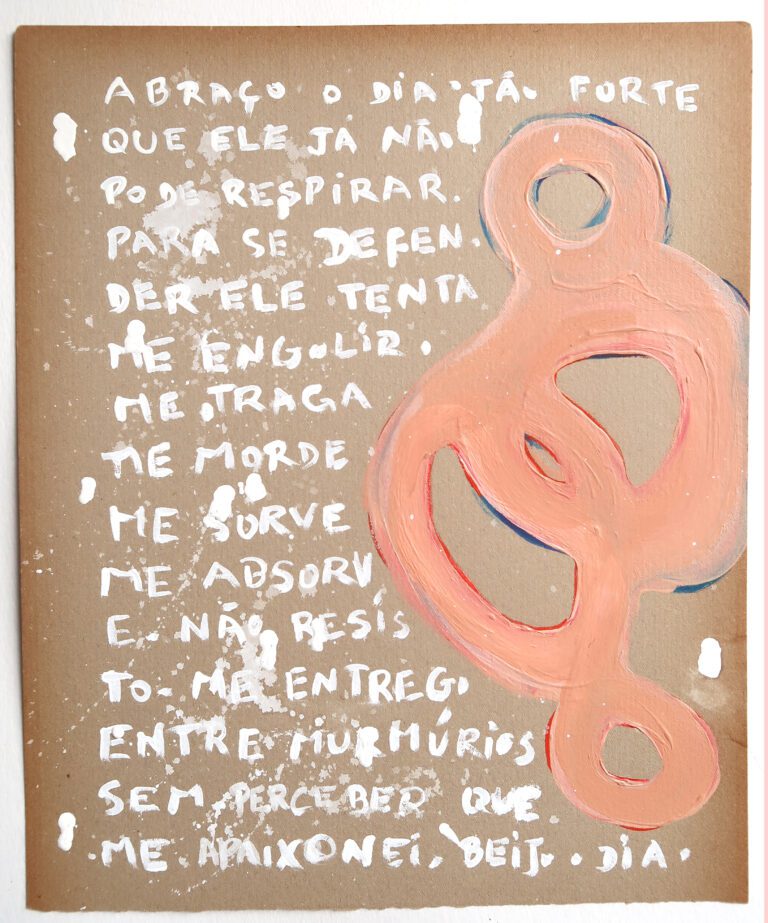 ABRAÇO O DIA TÃO FORTE
QUE ELE JA NÃO
PODE RESPIRAR.
PARA SE DEFEN.
DER ELE TENTA
ME ENGOLIR.
ME TRAGA
ME MORDE
ME SORVE
ME ABSORV
E. NÃO RESÍS
TO. ME ENTREGO
ENTRE MURMÚRIOS
SEM PERCEBER QUE
.ME APAIXONEI. BEIJO O DIA.